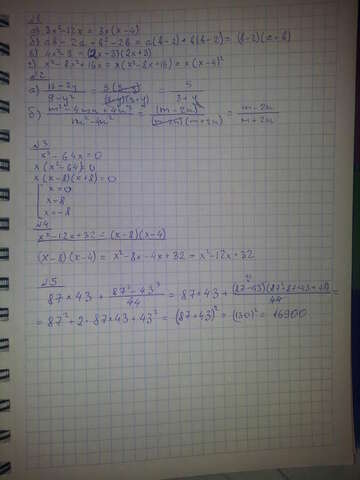 №1
а) 3x²-12x = 3x(x-4)
б) ab - 2a + b² - 2b = a(b-2)+b(b-2) = (b-2)(a+b)
в) 4x² - 9 = (2x-3)(2x+3)
г) x³-8x²+16x = x(x²-8x+16) = x(x-4)²
№2
а)
9-y²
3+y
б) m²-4mn+4n² / m²-4n² = (m-2n)² / (m-2n)(m+2n) = m-2n / m+2n
№3
x³-64x=0
x(x²-64)=0
x(x-8)(x+8)=0
x=0
x=8
x=-8
№4
x²-12x+32=(x-8)(x-4)
(x-8)(x-4) = x²-8x-4x+32 = x²-12x+32
№5
87×43 + 87³-43³ / 44 = 87×43 +
= 87²+2·87×43+43² = (87+43)² = (130)² = 16900